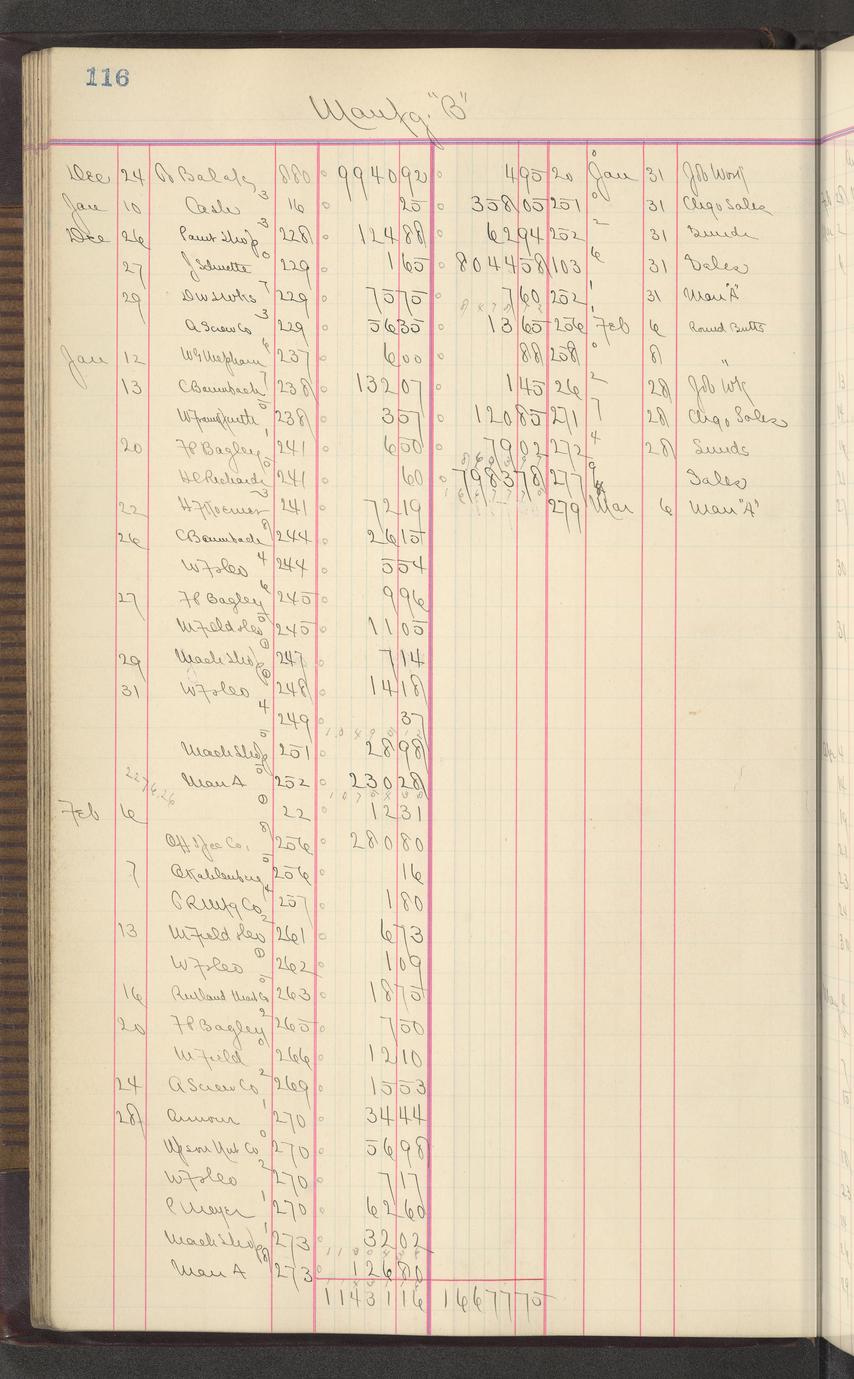 116
Manfg. "B"
Dec 24 Balaly 880 9940 92 4 95 20 Jan 31 Job Work
Jan 10 Cash 3 16 25 358 05 251 31 Chgo Sales
Dec 26 Paint Shop 3 228 124 88 62 94 252 31 Sunds
27 J Schuette 0 229 1 65 8044 58 103 31 Sales
29 229 75 75 7 60 252 31 Man "A"
A Screw Co 3 229 56 35 13 65 256 Feb 6 Round Butts
Jan 12 237 6 00 88 258 8 "
13 C Baumbach 7 238 132 07 1 45 26 28 Job Wk
238 3 57 120 85 271 28 Chgo Sales
20 F P Bagley 1 241 6 50 79 02 272 28 Sunds
H C Richards 0 241 60 7983 78 277 Sales
22 H F Koerner 3 241 72 19 279 Mar 6 Man "A"
26 C Baumbach 8 244 26 15
W F & Co 4 244 5 54
27 F P Bagley 6 245 9 96
M Field & Co 245 11 05
29 Mach Shop 247 7 14
31 W F & Co 248 14 18
4 249 37
Mach Shop 251 28 98
2276.26 Man A 252 230 28
Feb 6 22 12 31
256 280 80
7 256 16
C R Mfg Co 4 257 1 80
13 M Field & Co 2 261 6 73
W F & Co 262 1 09
16 263 18 75
20 F P Bagley 2 265 7 50
M Field 0 266 12 10
24 A Screw Co 2 269 15 53
28 Armour 1 270 34 44
Upson Nut Co 0 270 56 98
W F & Co 2 270 7 17
C Mayer 1 270 62 60
Mach Shop 1 273 32 02
Man A 8 273 126 80
11431 16 16677 75